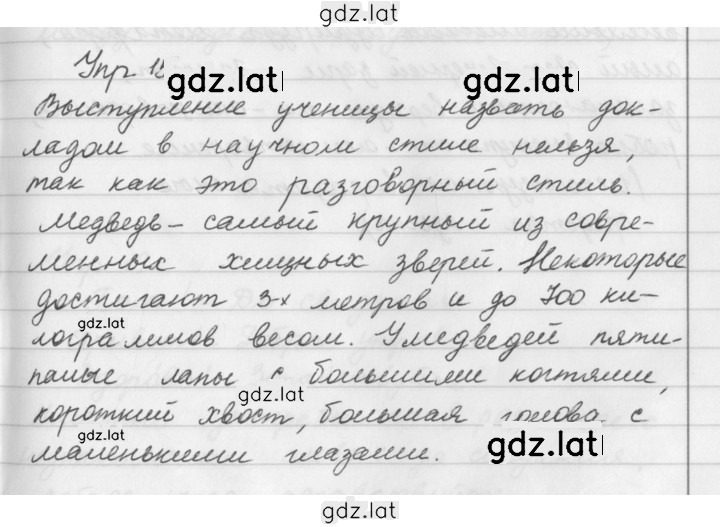 gdz.lat
Упр 12
gdz.lat
Выступление ученицы назвать док-
ладом в научном стиле нельзя,
так как это разговорный стиль.
Медведь – самый крупный из совре-
менных хищных зверей. Некоторые
достигают 3-х метров и до 700 ки-
gdz.lat
лограммов весом. У медведей пяти-
палые лапы с большими когтями,
короткий хвост, большая голова с
gdz.lat
маленькими глазами.
gdz.lat
gdz.lat